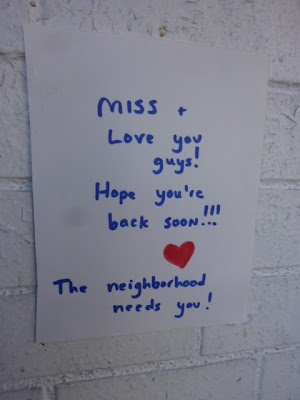 MISS +
Love you
guys!
Hope you're
back soon!!!
The neighborhood
needs you!